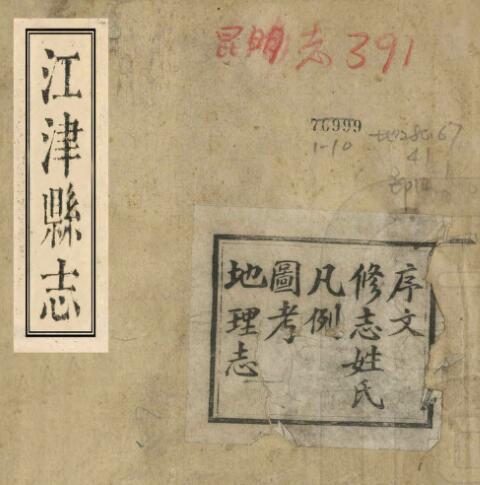 江津縣志
昆明志391
76999
1-10
序文
修志姓氏
凡例
圖考
地理志